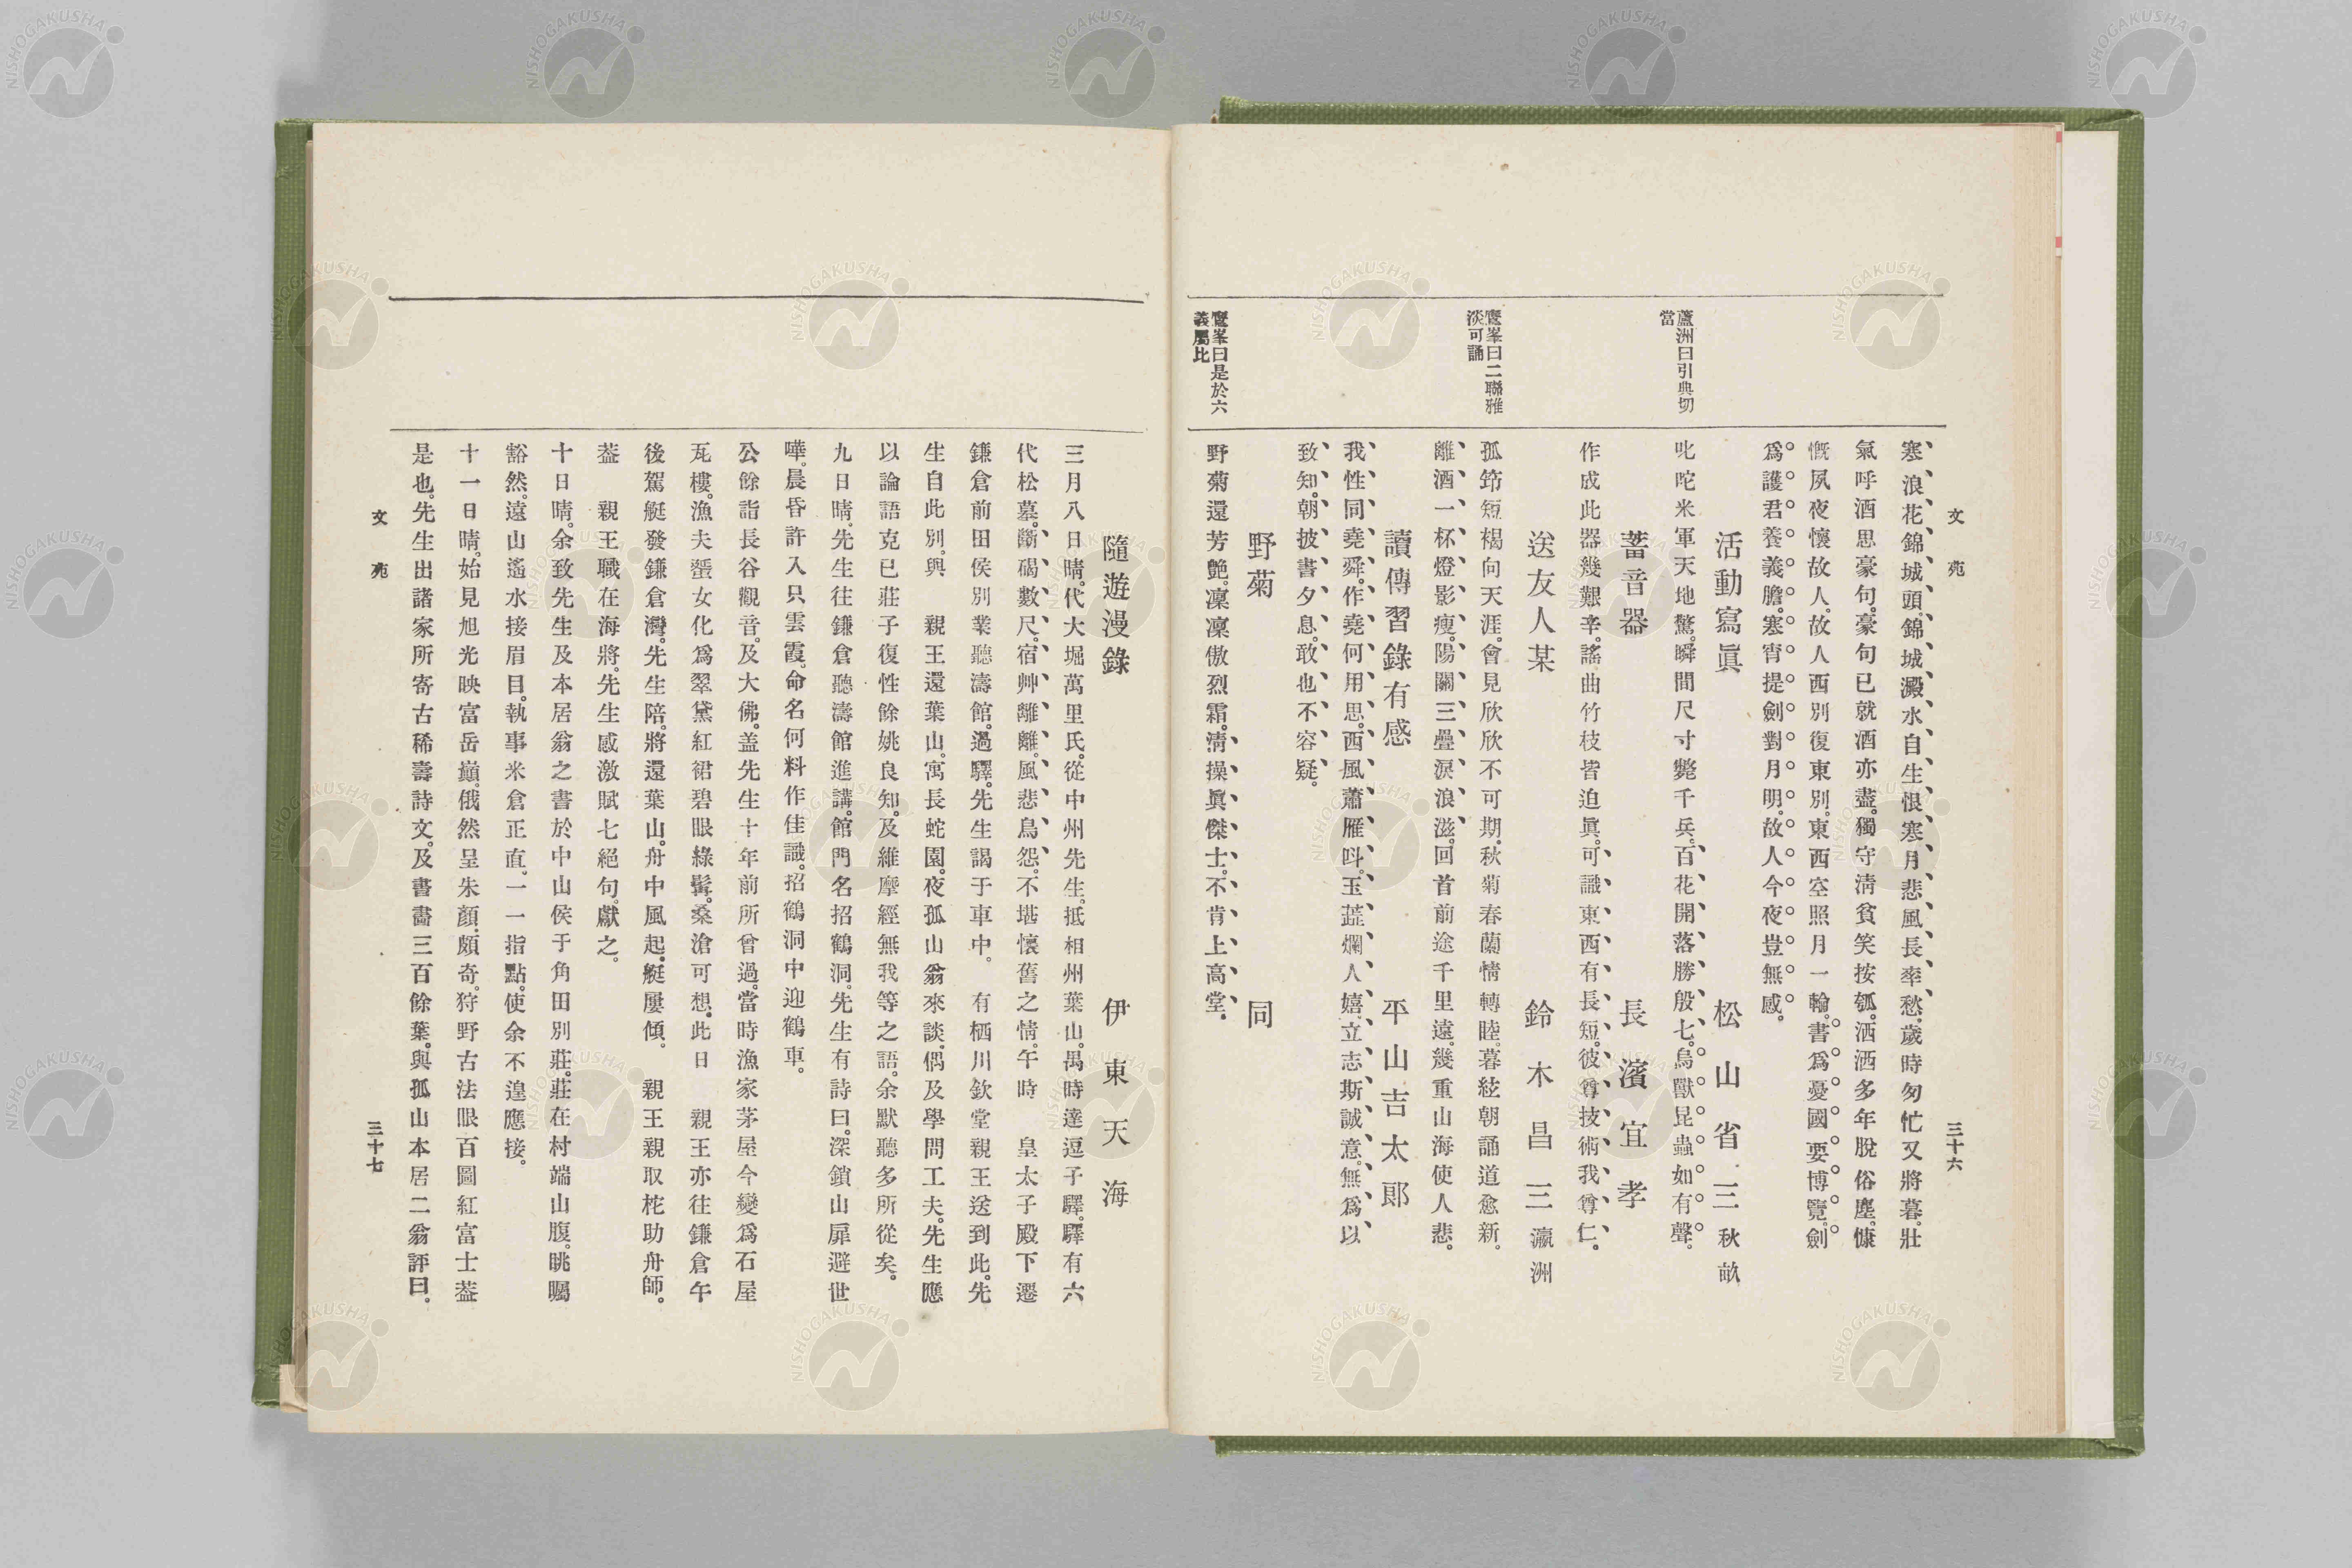 文苑
三十六
寒浪花錦城頭。錦城澱水自生恨。寒月悲風長牽愁。歲時匆忙又將暮。壯
氣呼酒思豪句。豪句已就酒亦盡。獨守淸貧笑按瓠。洒洒多年脫俗塵。慷
慨夙夜懷故人。故人西別復東別。東西空照月一輪。書爲憂國要博覽。劍
爲護君養義膽。寒宵提劍對月明。故人今夜豈無感。
活動寫眞
松山省三秋畝
蘆洲曰引典切
當
叱咤米軍天地驚。瞬間尺寸斃千兵。百花開落勝殷七。鳥獸昆蟲如有聲。
蓄音器
長濱宜孝
作成此器幾艱辛。謠曲竹枝皆迫眞。可識東西有長短。彼尊技術我尊仁。
送友人某
鈴木昌三瀛洲
鷹峯曰二聯雅
淡可誦
孤筇短褐向天涯。會見欣欣不可期。秋菊春蘭情轉睦。暮絃朝誦道愈新。
離酒一杯燈影瘦。陽關三疊淚浪滋。回首前途千里遠。幾重山海使人悲。
讀傳習錄有感
平山吉太郞
我性同堯舜。作堯何用思。西風蕭雁叫。玉蕋爛人嬉。立志斯誠意。無爲以
致知。朝披書夕息。敢也不容疑。
野菊
同
鷹峯曰是於六
義屬比
野菊還芳艶。凜凜傲烈霜。淸操眞傑士。不肯上高堂。
隨遊漫錄
伊東天海
三月八日晴。代大堀萬里氏。從中州先生。抵相州葉山。禺時達逗子驛。驛有六
代松墓。斷碣數尺。宿艸離離。風悲鳥怨。不堪懷舊之情。午時　皇太子殿下遷
鎌倉前田侯別業聽濤館。過驛。先生謁于車中。　有栖川欽堂親王送到此。先
生自此別。與　親王還葉山。寓長蛇園。夜孤山翁來談。偶及學問工夫。先生應
以論語克已莊子復性餘姚良知。及維摩經無我等之語。余默聽多所從矣。
九日晴。先生往鎌倉聽濤館進講。館門名招鶴洞。先生有詩曰。深鎖山扉避世
嘩。晨昏許入只雲霞。命名何料作佳識。招鶴洞中迎鶴車。
公餘詣長谷觀音。及大佛。盖先生十年前所曾過。當時漁家茅屋今變爲石屋
瓦樓。漁夫蜑女化爲翠黛紅裙碧眼綠鬟。桑滄可想。此日　親王亦往鎌倉午
後駕艇發鎌倉灣。先生陪。將還葉山。舟中風起。艇屢傾。　親王親取柁助舟師。
葢　親王職在海將。先生感激賦七絕句。獻之。
十日晴。余致先生及本居翁之書於中山侯于角田別莊。莊在村端山腹。眺矚
豁然。遠山遙水接眉目。執事米倉正直。一一指點。使余不遑應接。
十一日晴。始見旭光映富岳巓。俄然呈朱顏。頗奇。狩野古法眼百圖紅富士葢
是也。先生出諸家所寄古稀壽詩文。及書畵三百餘葉。與孤山本居二翁評曰。
文苑
三十七